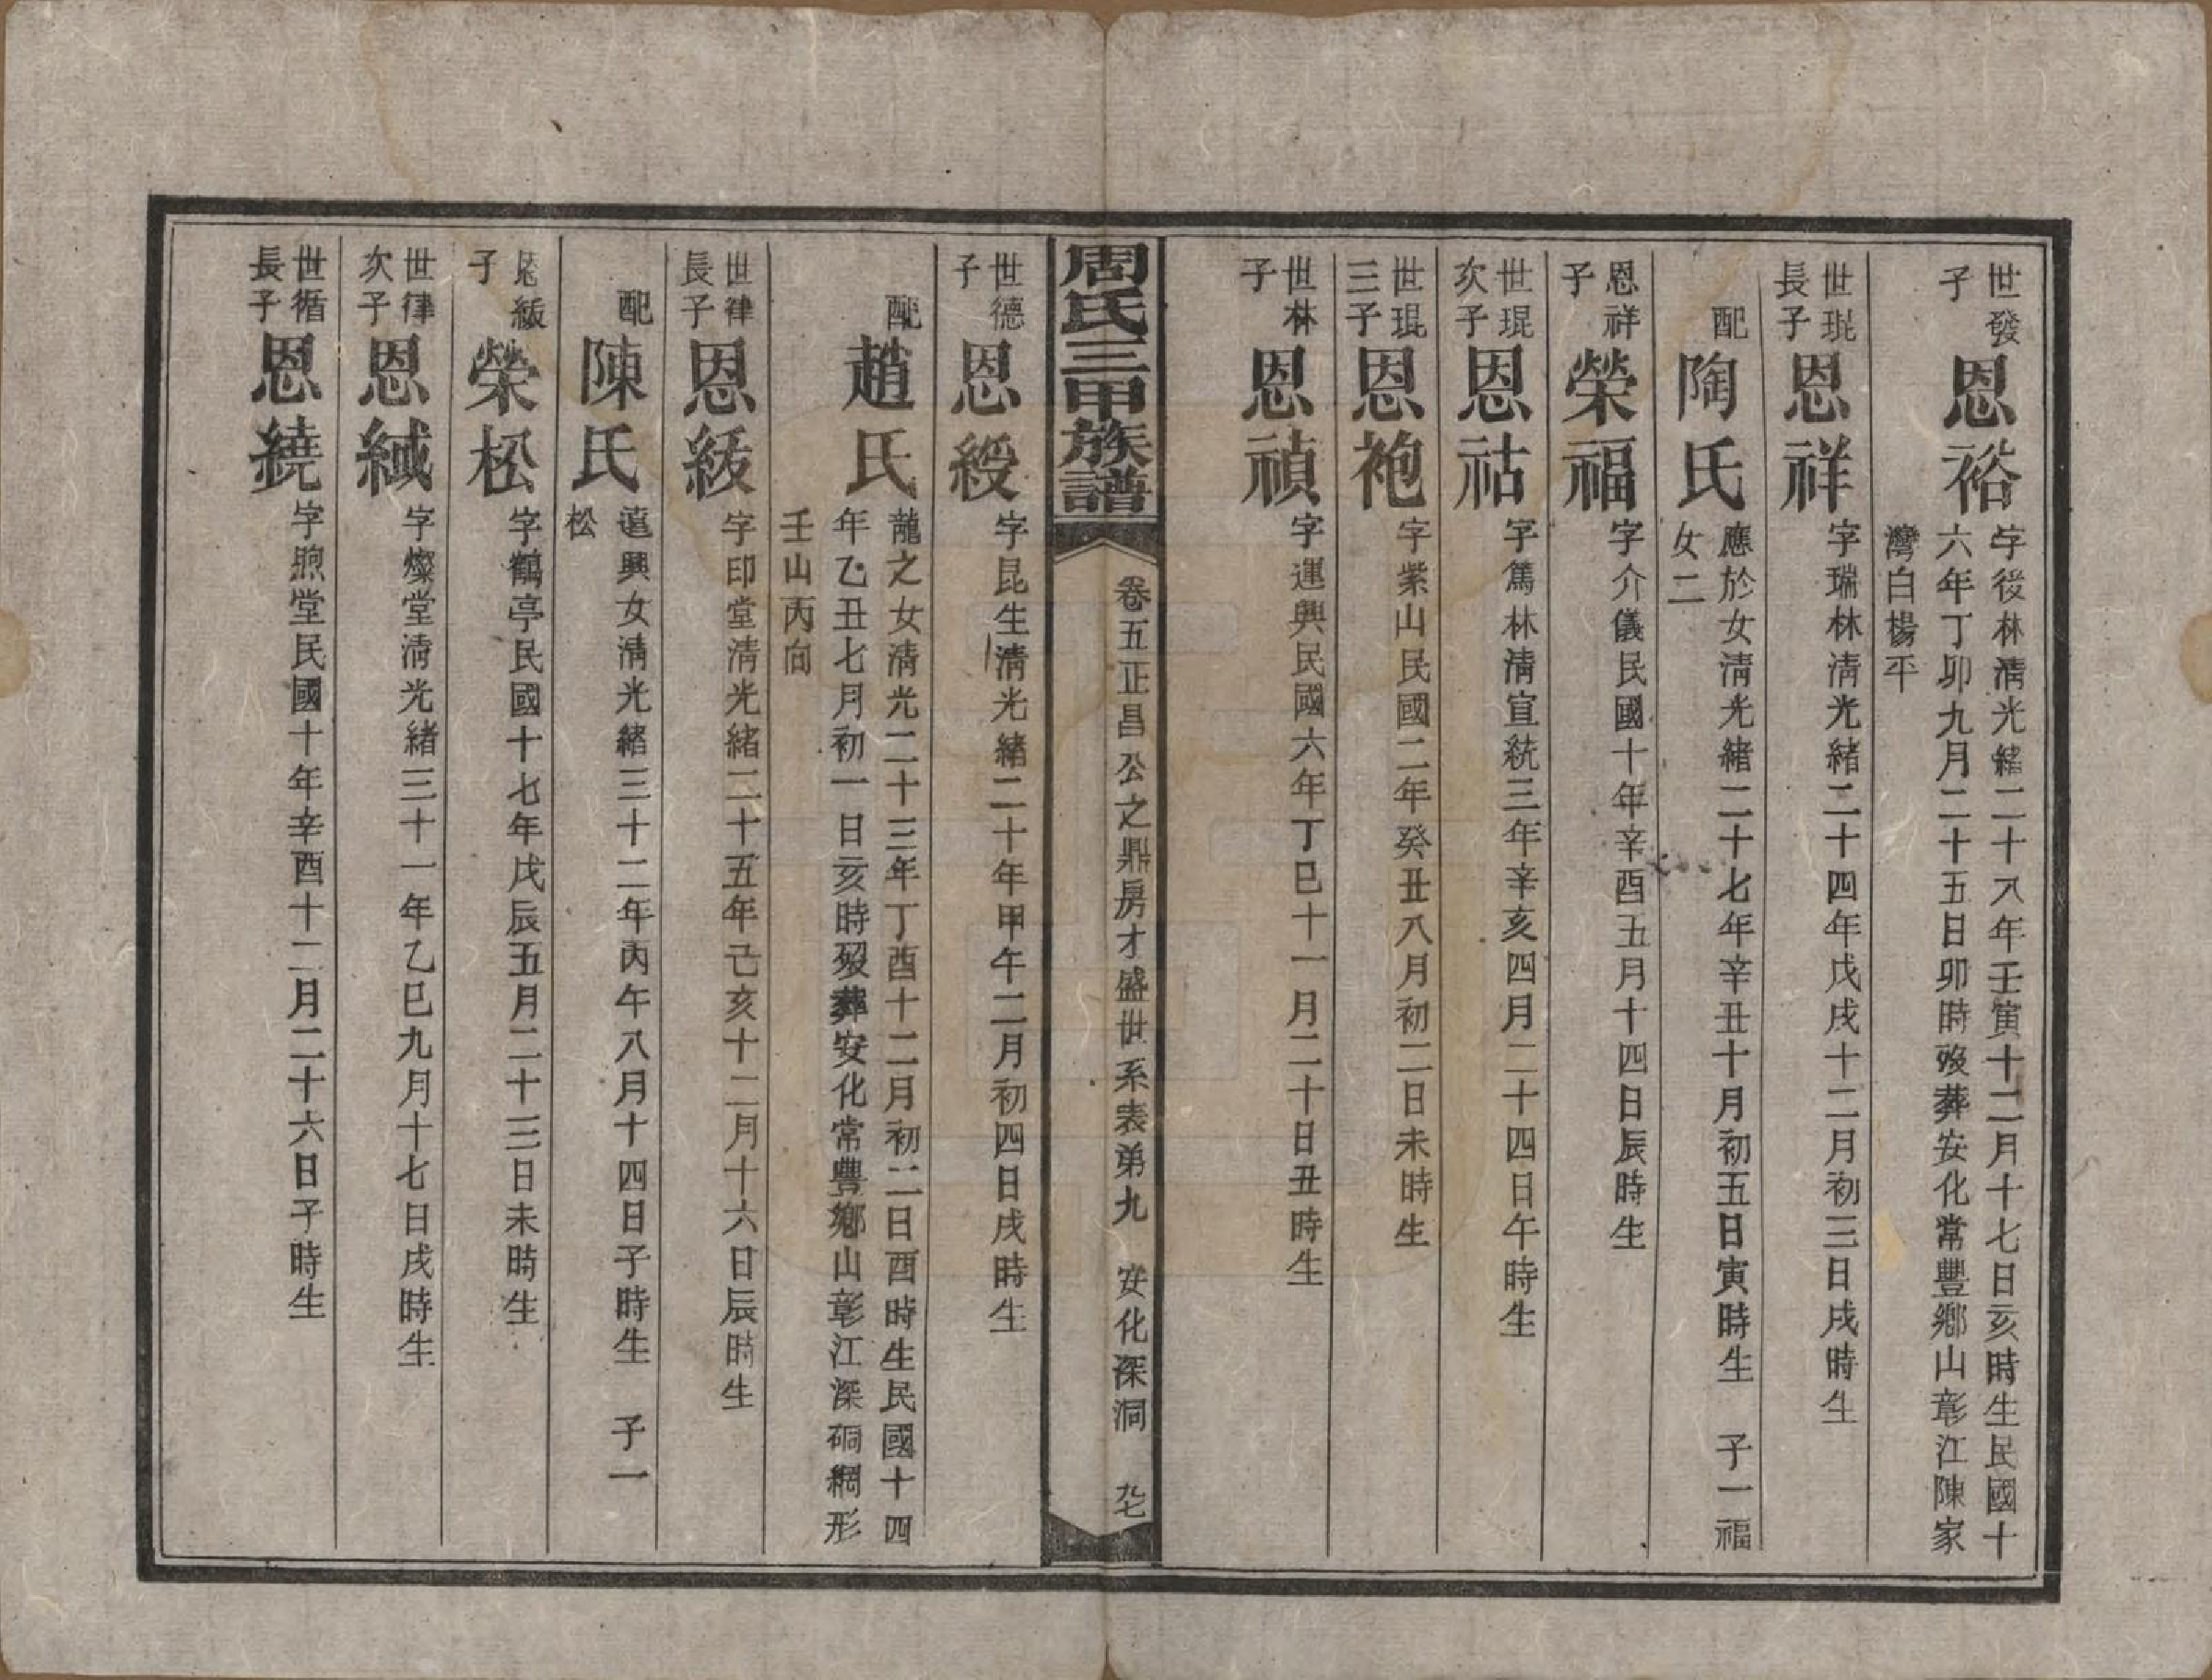 世發
子
恩裕
字後林淸光緒二十八年壬寅十二月十七日亥時生民國十
六年丁卯九月二十五日卯時歿葬安化常豐鄉山彰江陳家
灣白楊平
世琨
長子
恩祥
字瑞林淸光緒二十四年戊戌十二月初三日戌時生
配
陶氏
應於女淸光緒二十七年辛丑十月初五日寅時生 子一福
女二
恩祥
子
榮福
字介儀民國十年辛酉五月十四日辰時生
世琨
次子
恩祜
字篤林淸宣統三年辛亥四月二十四日午時生
世琨
三子
恩袍
字紫山民國二年癸丑八月初二日未時生
世林
子
恩禎
字運興民國六年丁巳十一月二十日丑時生
周氏三甲族譜
卷五正昌公之鼎房才盛世系表弟九 安化深洞 九七
世德
子
恩綬
字昆生淸光緒二十年甲午二月初四日戌時生
配
趙氏
龍之女淸光二十三年丁酉十二月初二日酉時生民國十四
年乙丑七月初一日亥時歿葬安化常豐鄉山彰江深硐網形
壬山丙向
世律
長子
恩紱
字印堂淸光緒二十五年己亥十二月十六日辰時生
配
陳氏
遠興女淸光緒三十二年丙午八月十四日子時生 子一
松
恩紱
子
榮松
字鶴亭民國十七年戊辰五月二十三日未時生
世律
次子
恩緎
字燦堂淸光緒三十一年乙巳九月十七日戌時生
世循
長子
恩繞
字煦堂民國十年辛酉十二月二十六日子時生